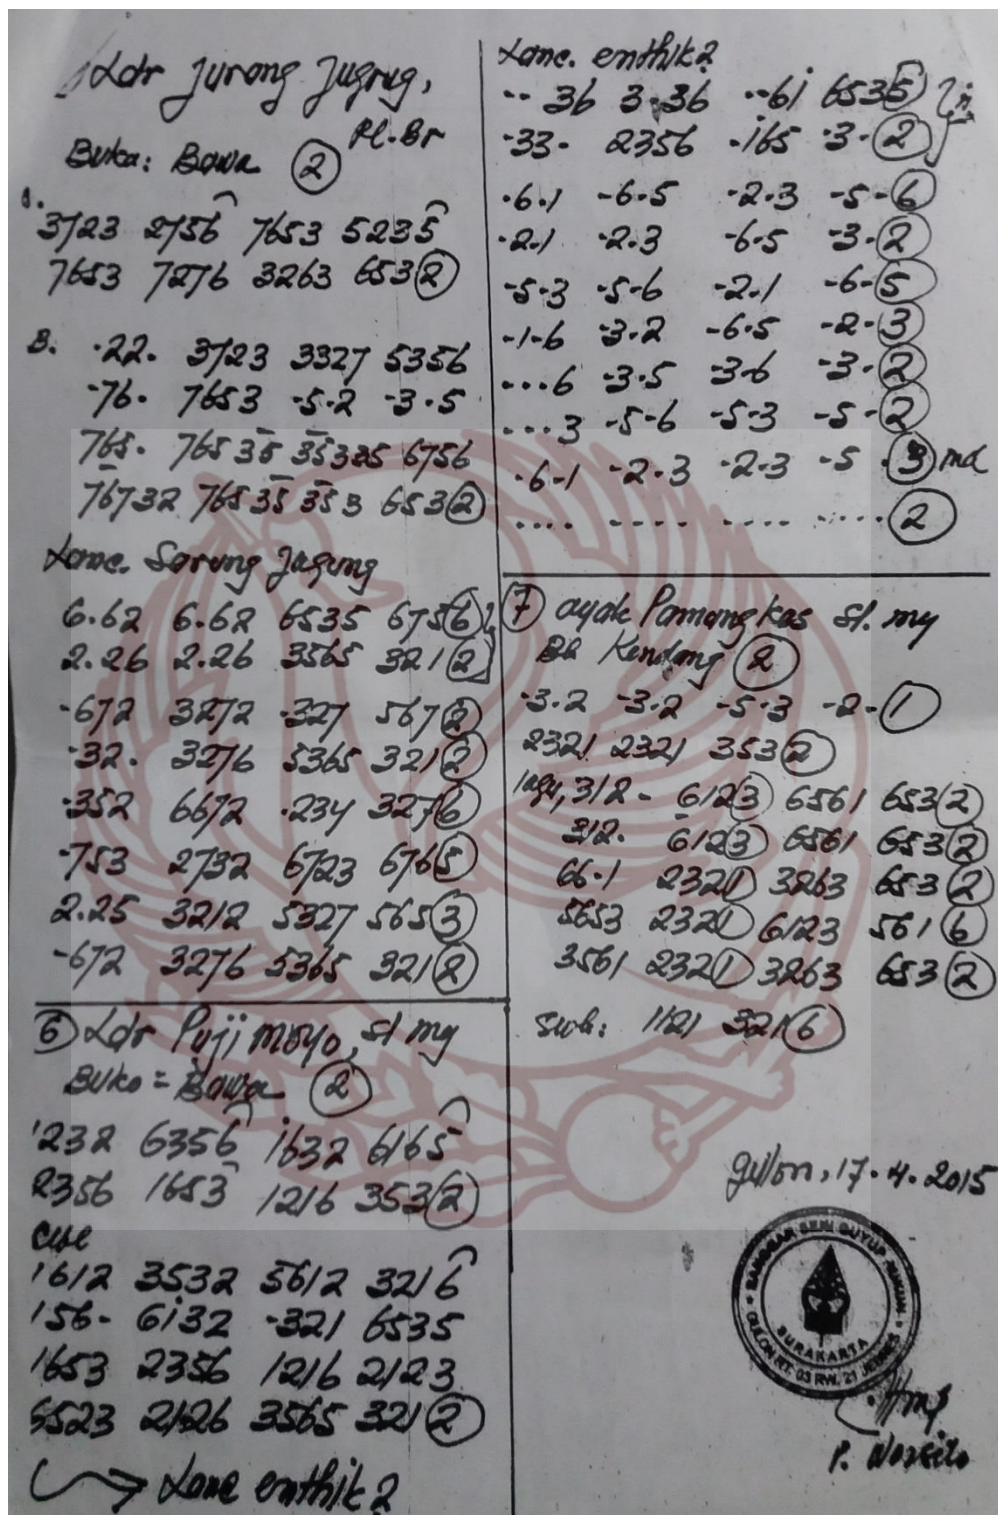 Ldr Jurang Jugrug,
Pl. Br
Buka: Bawa (2)
A.
3723 2756 7653 5235
7653 7276 3263 653(2)
B. .22. 3723 3327 5356
-76. 7653 -5.2 -3.5
765. 76535 35335 6756
76732 76535 353 653(2)
Lanc. Sarung Jagung
6.62 6.62 6535 675(6)
2.26 2.26 3565 321(2)
-672 3272 .327 567(2)
-32. 3276 5365 321(2)
.352 6672 .234 327(6)
-753 2732 6723 676(5)
2.25 3212 5327 565(3)
-672 3276 5365 321(2)
(6) Ldr Puji moyo, sl my
Buko = Bawa (2)
1232 6356 1632 6165
2356 1653 1216 353(2)
1612 3532 5612 3216
156- 6132 -321 6535
1653 2356 1216 2123
6523 2126 3565 321(2)
→ Lanc enthik2
Lanc. enthik2
-- 36 3.36 --61 653(5)
-33- 2356 .165 .3.(2)
.6.1 -6.5 -2.3 -5-(6)
-2.1 -2.3 -6.5 -3.(2)
-5.3 -5-6 -2.1 -6-(5)
-1-6 -3.2 -6.5 -2-(3)
...6 -3.5 -3-6 -3.(2)
...3 -5-6 -5-3 -5-(2)
.6-1 -2.3 -2.3 -5 .(3) md
.... .... .... ....(2)
(7) ayak Pamangkas Sl. my
Bk Kendang (2)
-3.2 -3.2 -5.3 -2-(1)
2321 2321 353(2)
lagu, 312- 612(3) 6561 653(2)
312. 612(3) 6561 653(2)
66.1 232(1) 3263 653(2)
5653 232(1) 6123 561(6)
3561 232(1) 3263 653(2)
Swk: 1121 321(6)
gulon, 17.4.2015
SANGGAR SENI GUYUP RUKUN
SURAKARTA
GULON RT. 03 RW. 21 JEBRES
P. Warsito